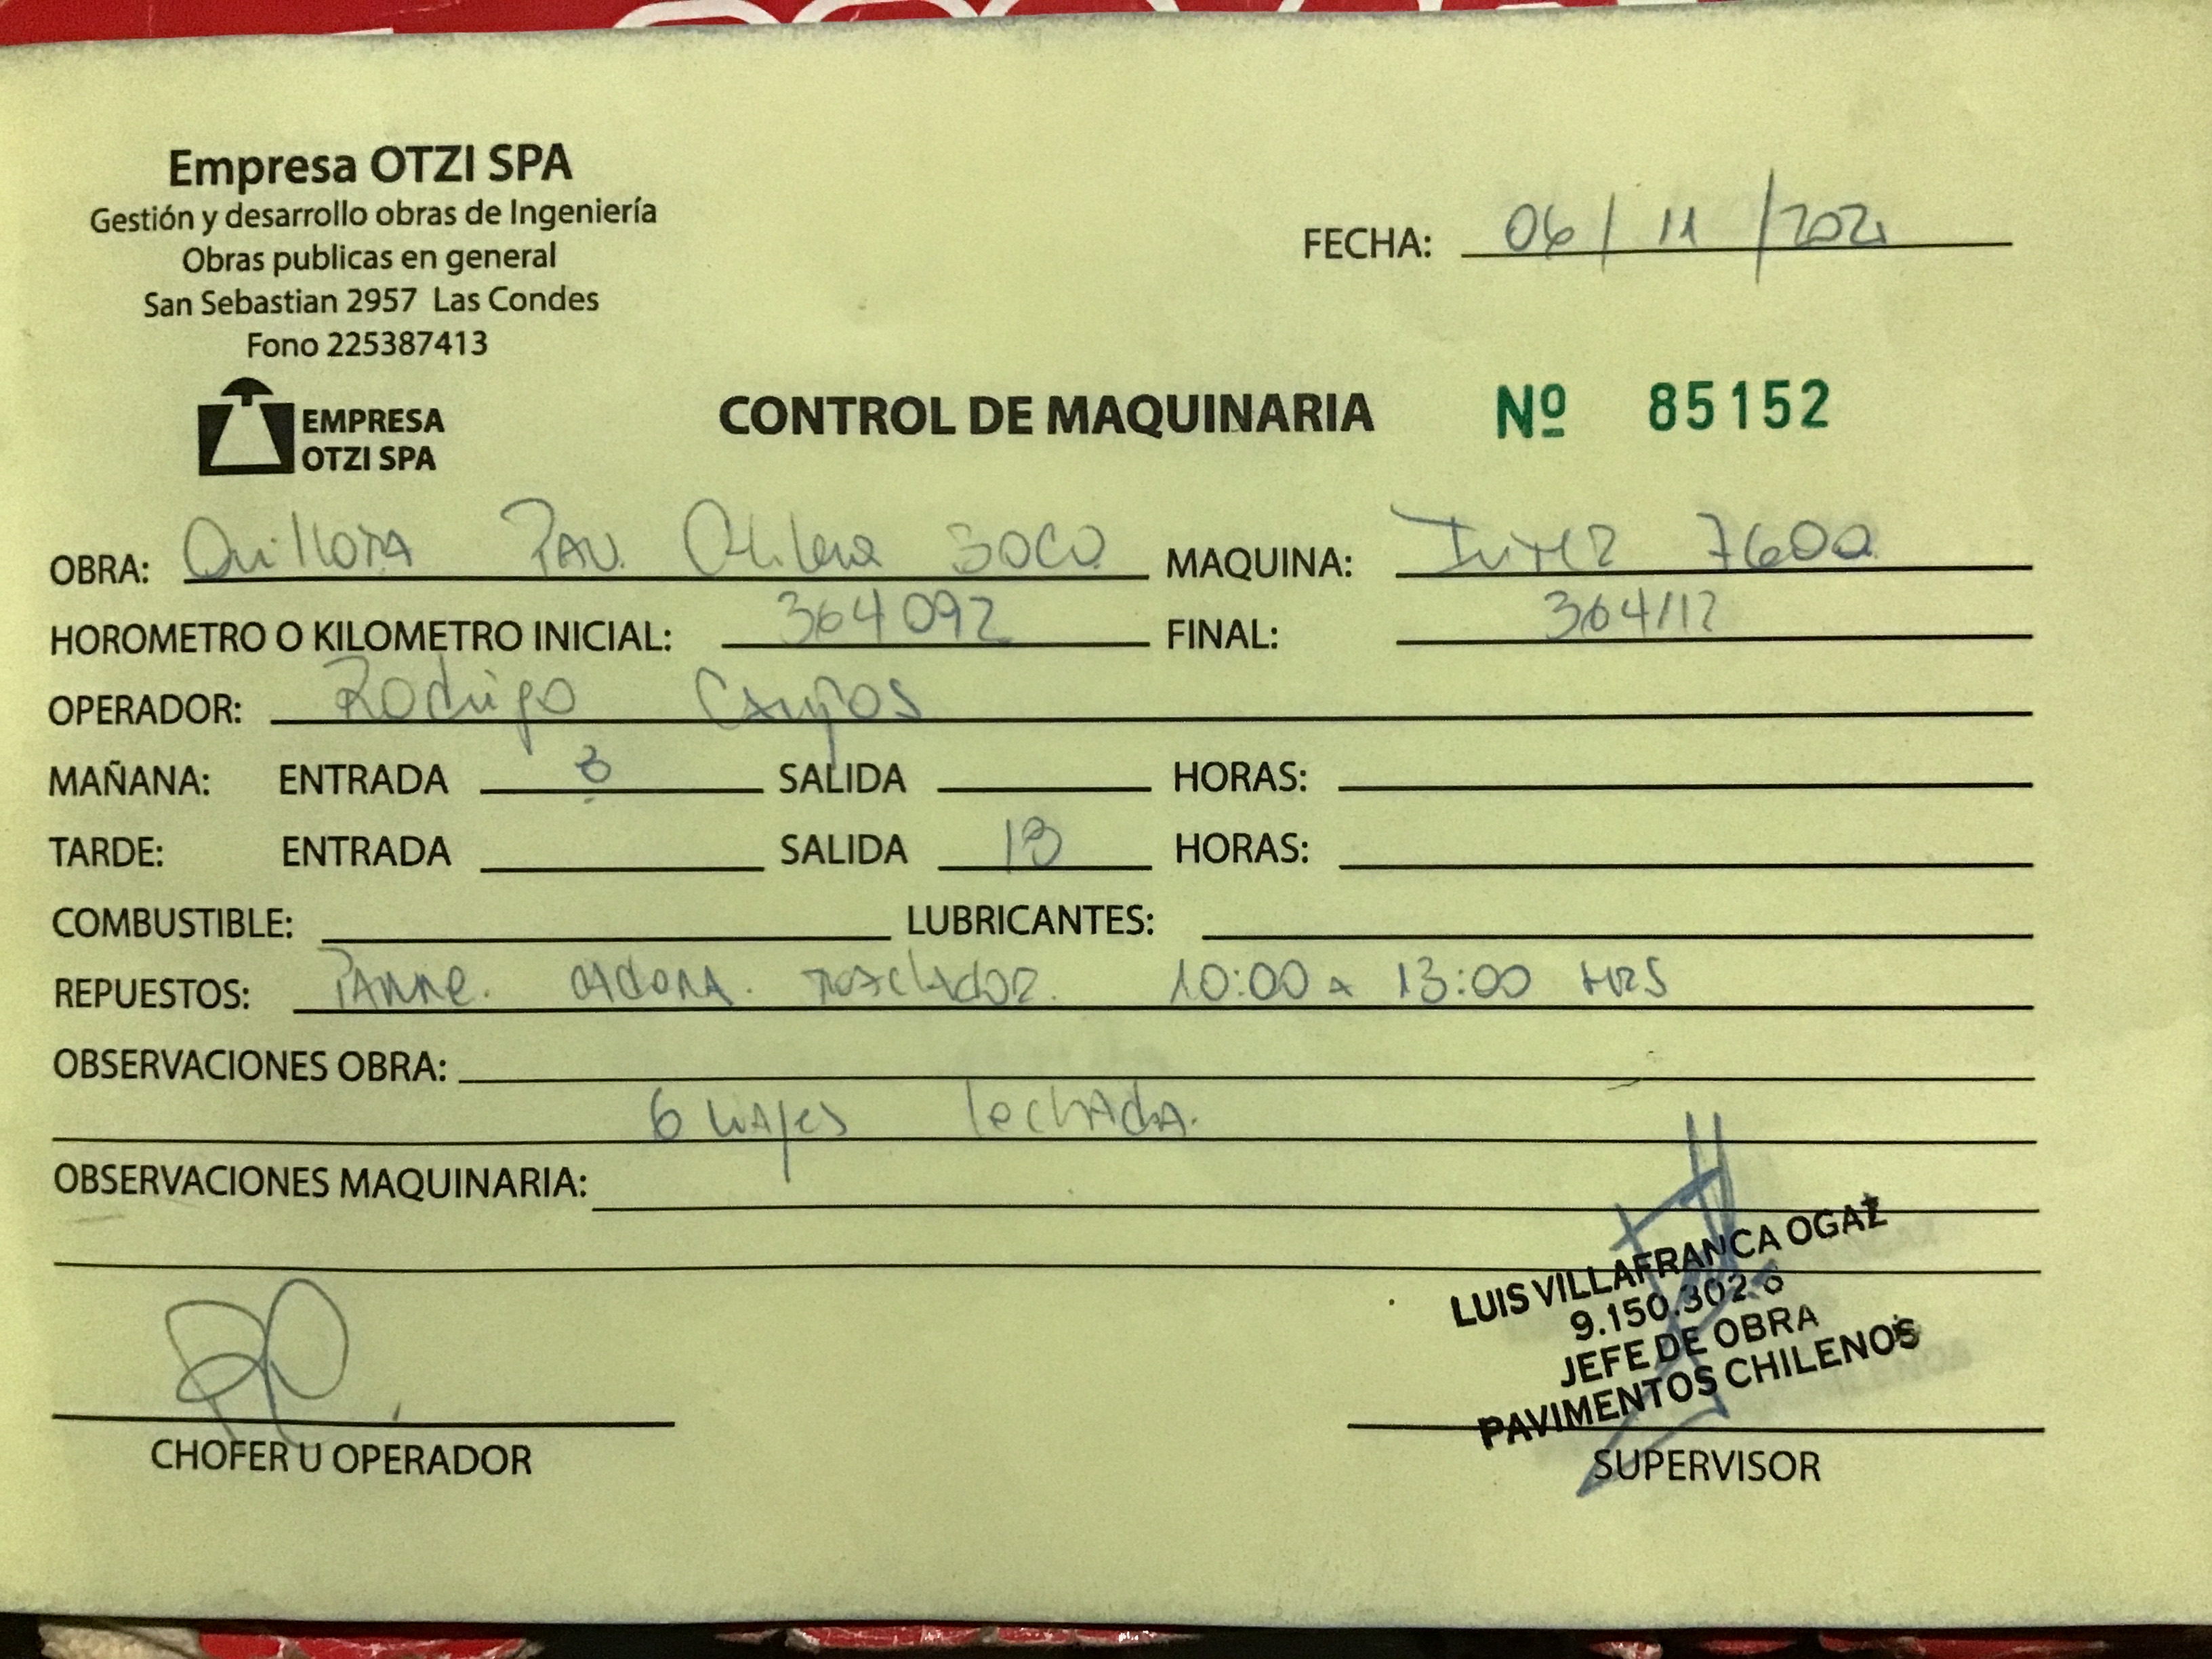 Empresa OTZI SPA
Gestión y desarrollo obras de Ingeniería
Obras publicas en general
San Sebastian 2957 Las Condes
Fono 225387413
FECHA: 06 / 11 / 2021
EMPRESA
OTZI SPA
CONTROL DE MAQUINARIA Nº 85152
OBRA: Quillota Pav. Chilena MAQUINA:
HOROMETRO O KILOMETRO INICIAL: 364092 FINAL: 364112
OPERADOR: Rodrigo Campos
MAÑANA: ENTRADA 8 SALIDA HORAS:
TARDE: ENTRADA SALIDA 18 HORAS:
COMBUSTIBLE: LUBRICANTES:
REPUESTOS: Panne. 10:00 a 13:00 HRS
OBSERVACIONES OBRA:
6 viajes lechada.
OBSERVACIONES MAQUINARIA:
LUIS VILLAFRANCA OGAZ
9.150.302-
JEFE DE OBRA
PAVIMENTOS CHILENOS
CHOFER U OPERADOR
SUPERVISOR